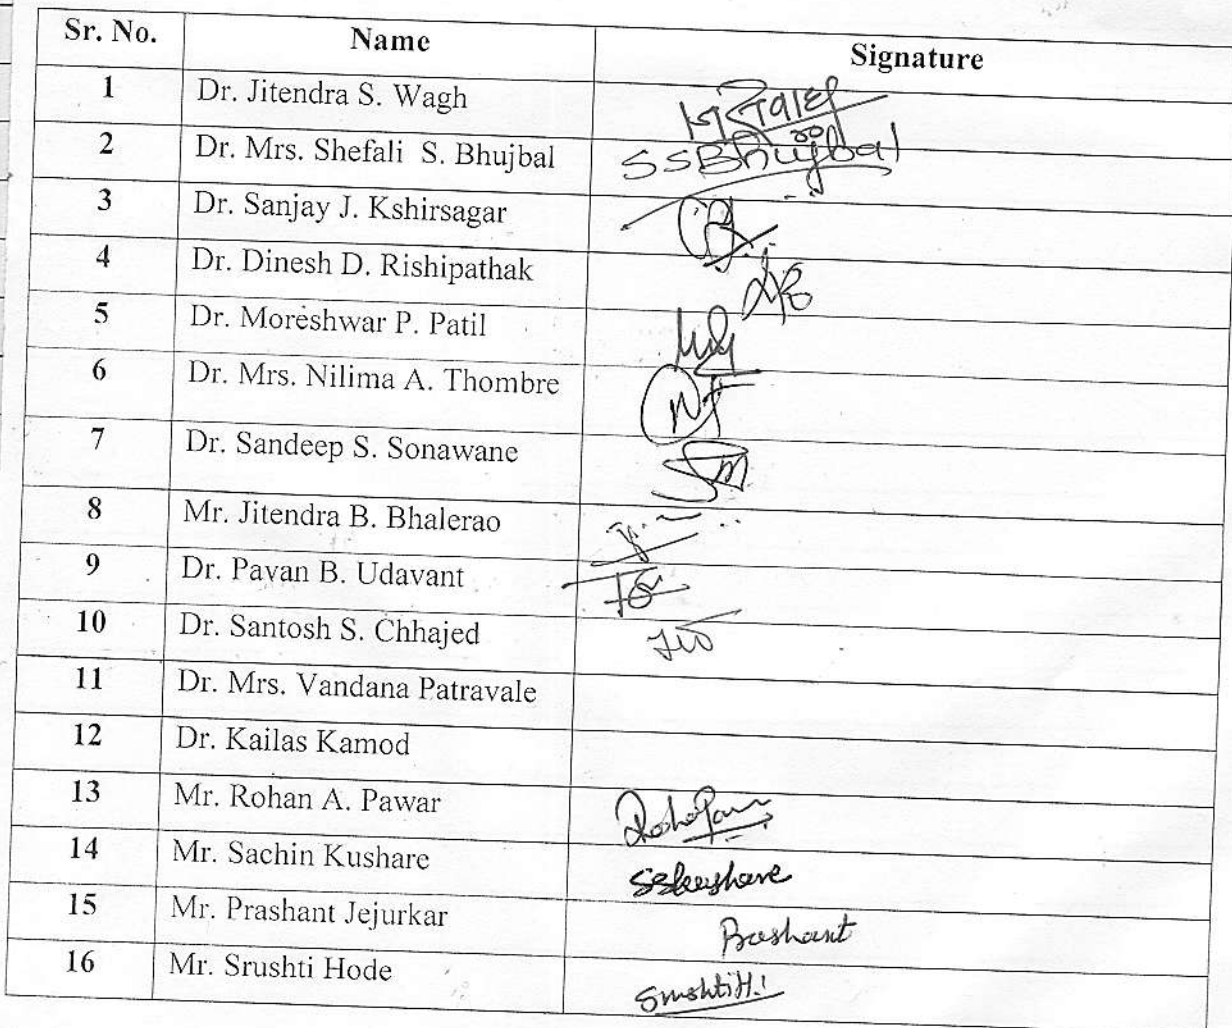 Sr. No. Name Signature
1 Dr. Jitendra S. Wagh
2 Dr. Mrs. Shefali S. Bhujbal SSBhujbal
3 Dr. Sanjay J. Kshirsagar
4 Dr. Dinesh D. Rishipathak
5 Dr. Moreshwar P. Patil
6 Dr. Mrs. Nilima A. Thombre
7 Dr. Sandeep S. Sonawane
8 Mr. Jitendra B. Bhalerao
9 Dr. Pavan B. Udavant
10 Dr. Santosh S. Chhajed
11 Dr. Mrs. Vandana Patravale
12 Dr. Kailas Kamod
13 Mr. Rohan A. Pawar
14 Mr. Sachin Kushare SSKushare
15 Mr. Prashant Jejurkar Prashant
16 Mr. Srushti Hode Srushti H.